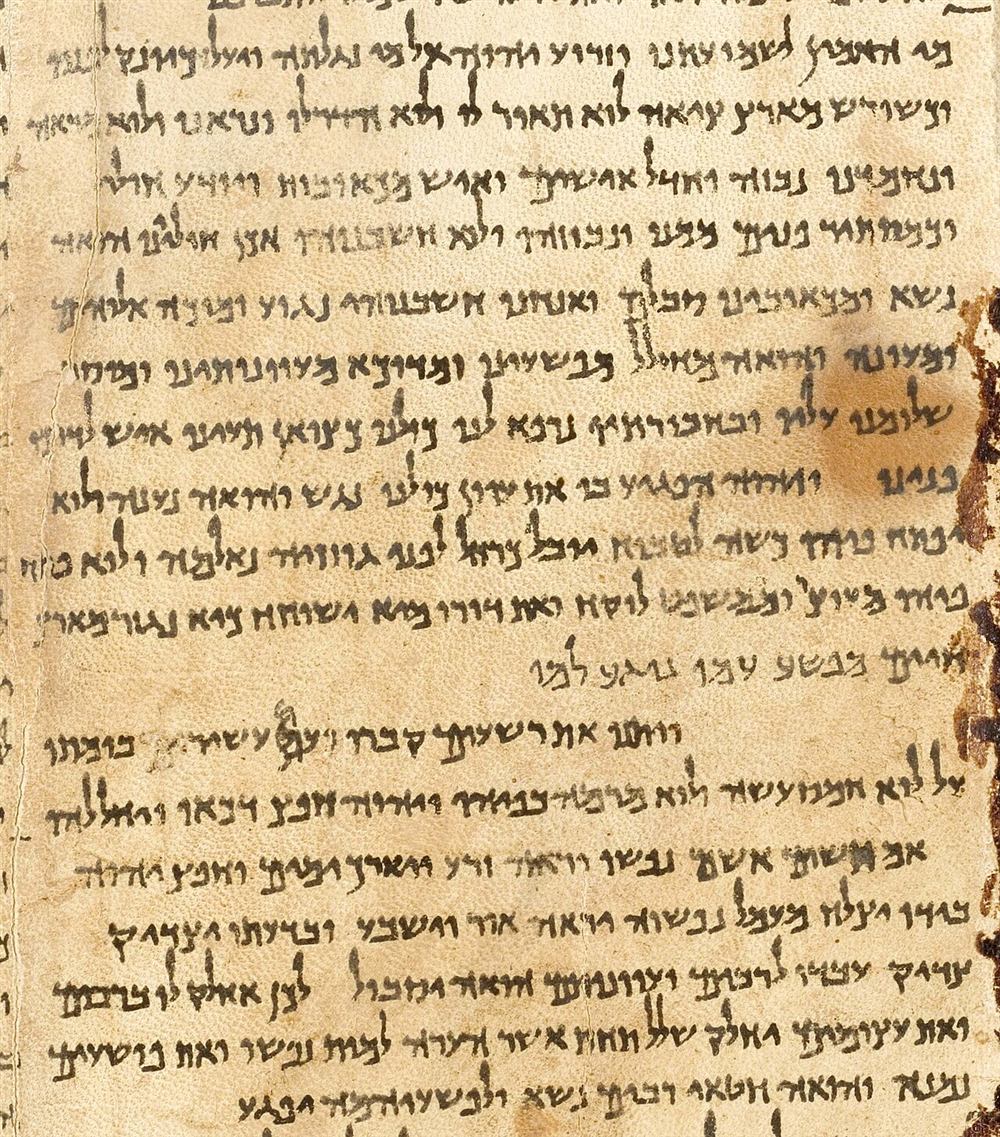 מי האמין לשמועתנו וזרוע יהוה אל מי נגלתה ויעל כיונק לפניו
וכשורש מארץ ציאה לוא תאור לו ולוא הדר לו ונראנו ולוא מראה
ונחמדנו נבזה וחדל אישים ואיש מכאובות ויודע חולי
וכמסתיר פנים ממנו ונבוזהו ולוא חשבנוהו אכן חוליינו הואה
נשא ומכאובינו סבלם ואנחנו חשבנוהו נגוע ומוכה אלוהים
ומעונה והואה מחולל מפשעינו ומדוכא מעוונותינו ומוסר
שלומנו עליו ובחבורתיו נרפא לנו כולנו כצואן תעינו איש לדרכו
פנינו ויהוה הפגיע בו את עוון כולנו נגש והואה נענה ולוא
יפתח פיהו כשה לטבוח יובל כרחל לפני גוזזיה נאלמה ולוא פתח
פיהו מעוצר וממשפט לוקח ואת דורו מיא ישוחח כיא נגזר מארץ
חיים מפשע עמי נוגע למו
ויתנו את רשעים קברו ועם עשירים בומתו
על לוא חמס עשה ולוא מרמה בפיהו ויהוה חפץ דכאו ויחללהו
אם תשים אשם נפשו יראה זרע ויאריך ימים וחפץ יהוה
בידו יצלח מעמל נפשוה יראה אור וישבע ובדעתו יצדיק
צדיק עבדו לרבים ועוונותם הואה יסבול לכן אחלק לו ברבים
ואת עצומים יחלק שלל תחת אשר הערה למות נפשו ואת פושעים
נמנא והואה חטאי רבים נשא ולפשעיהמה יפגע